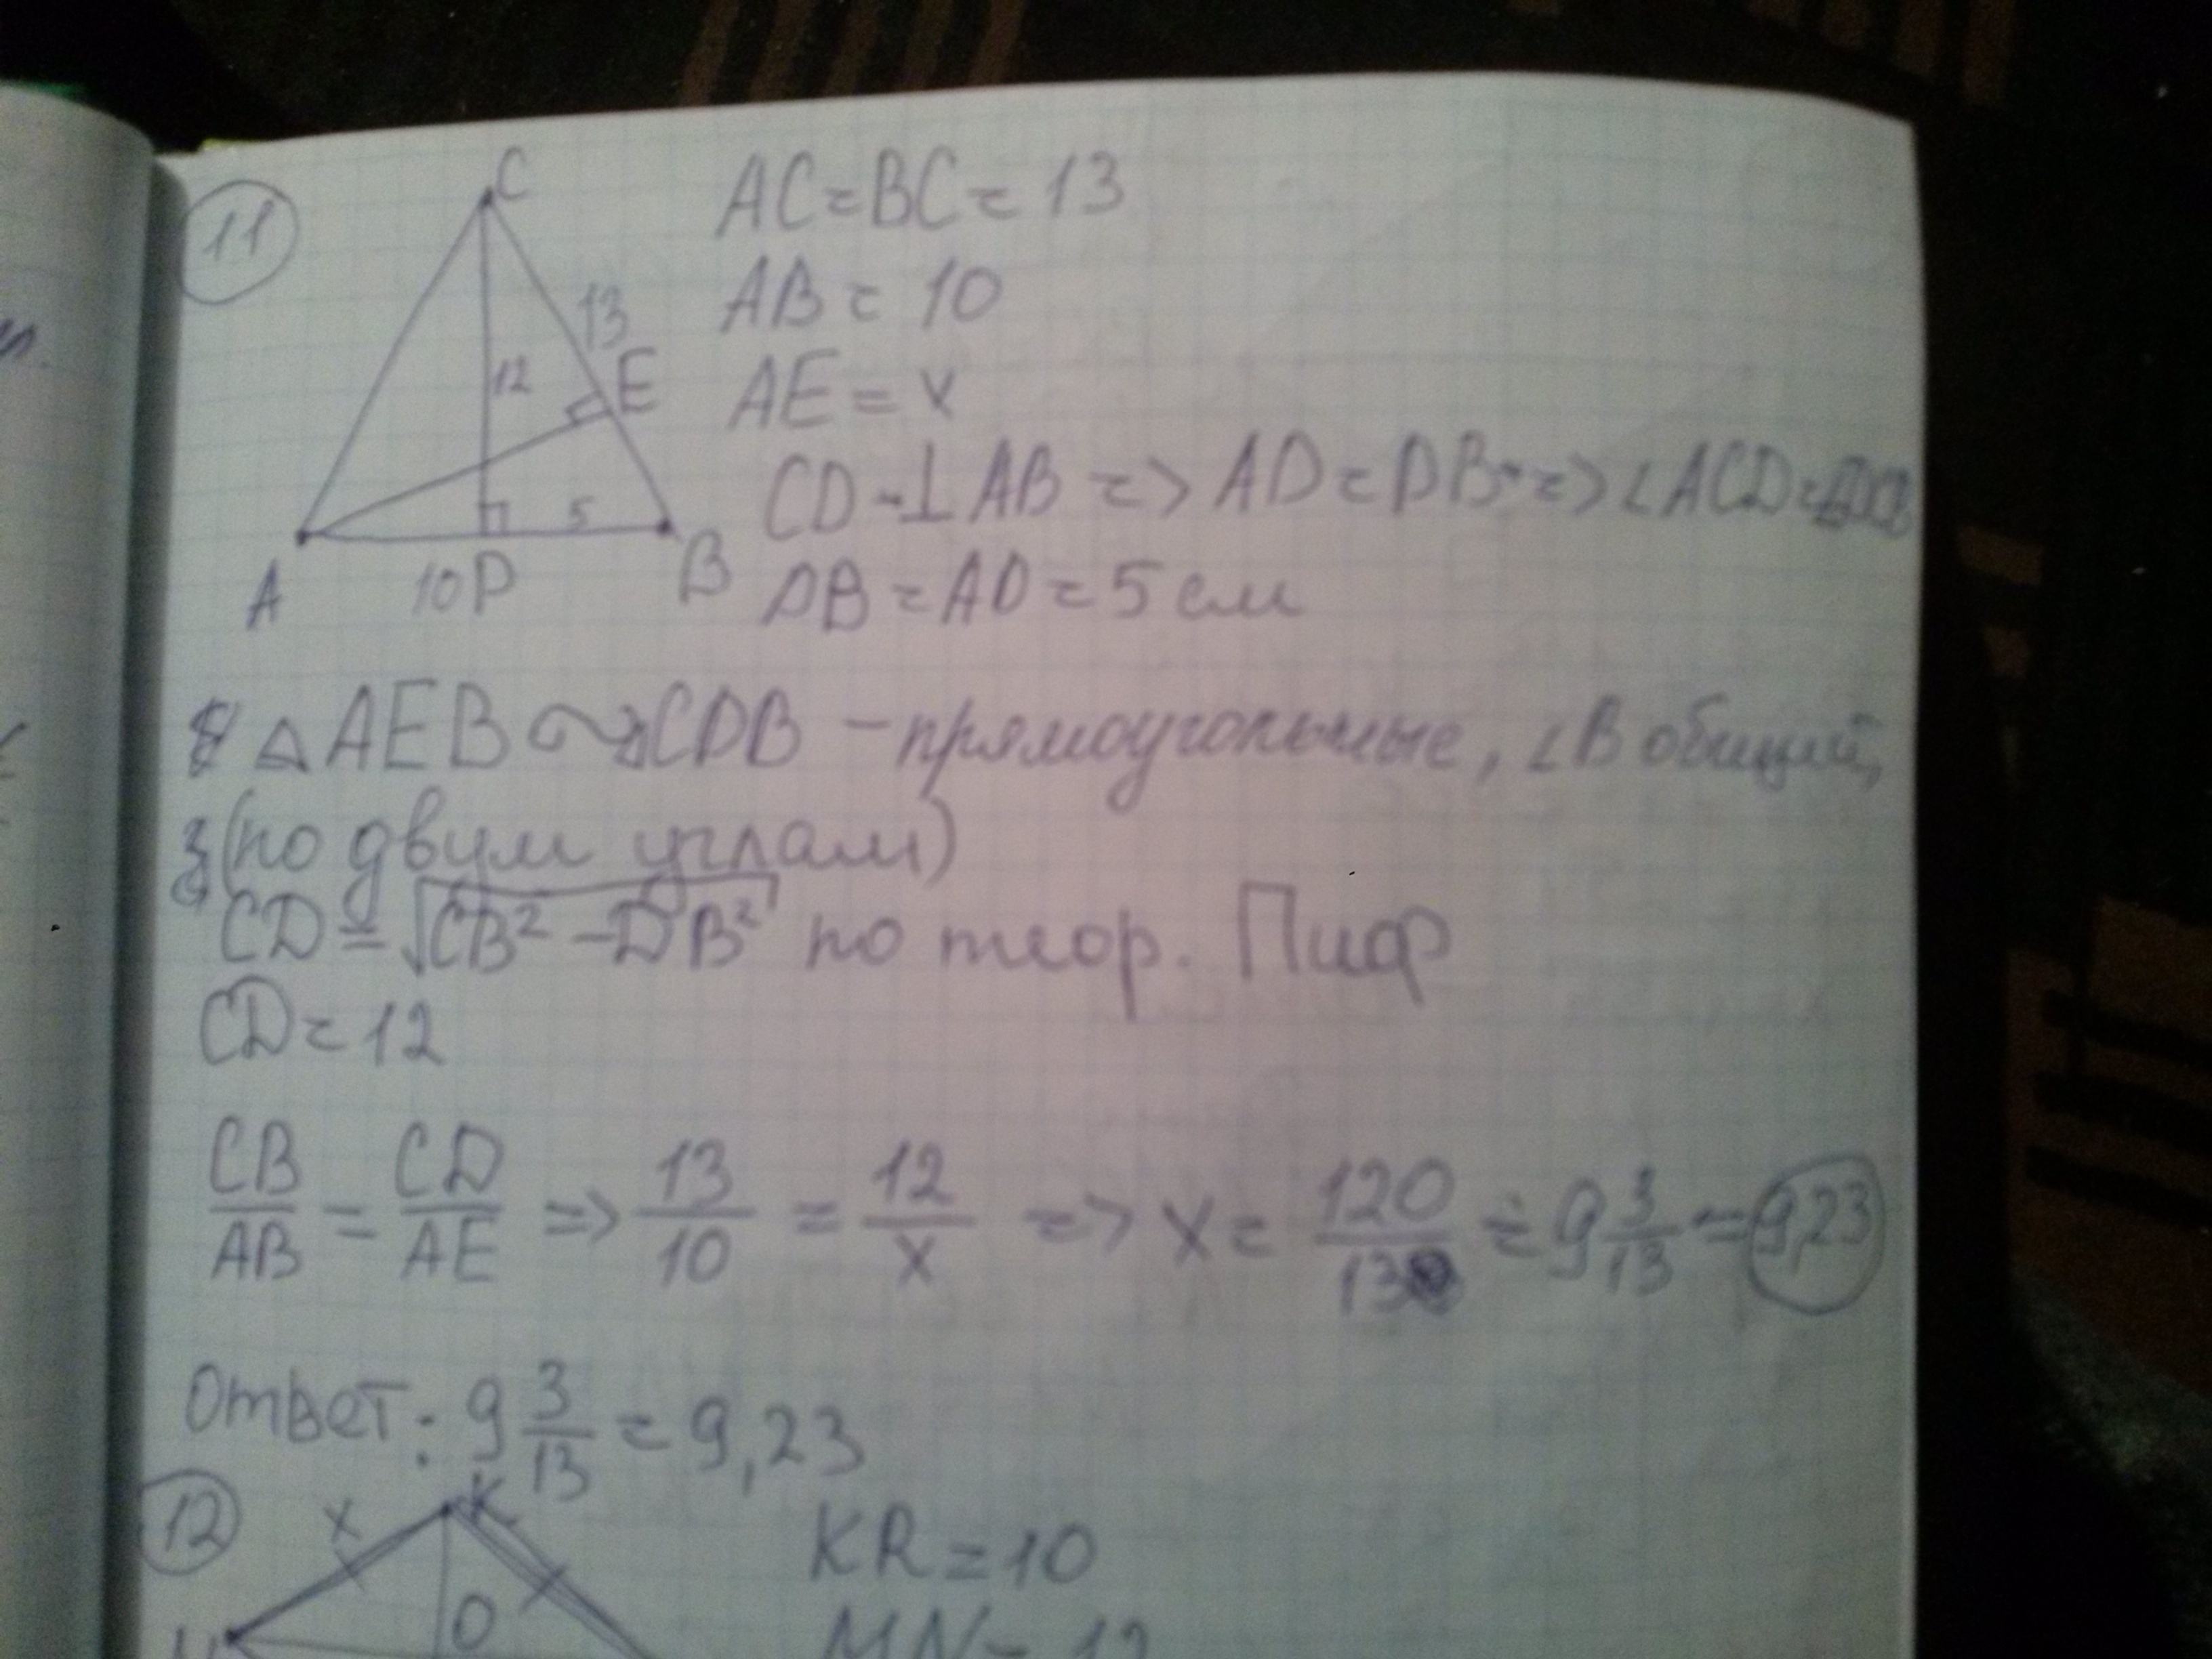 11
C
AC=BC=13
AB=10
13
12
E
AE=x
CD-⊥AB=>AD=DB=>∠ACD=
5
A
10D
B
DB=AD=5см
△AEB∾CDB-прямоугольные, ∠B общий,
(по двум углам)
CD=√CB²-DB² по теор. Пиф
CD=12
CB/AB=CD/AE=>13/10=12/x=>x=120/13=9 3/13=9,23
Ответ: 9 3/13=9,23
12
x
K
KR=10
O
MN=12